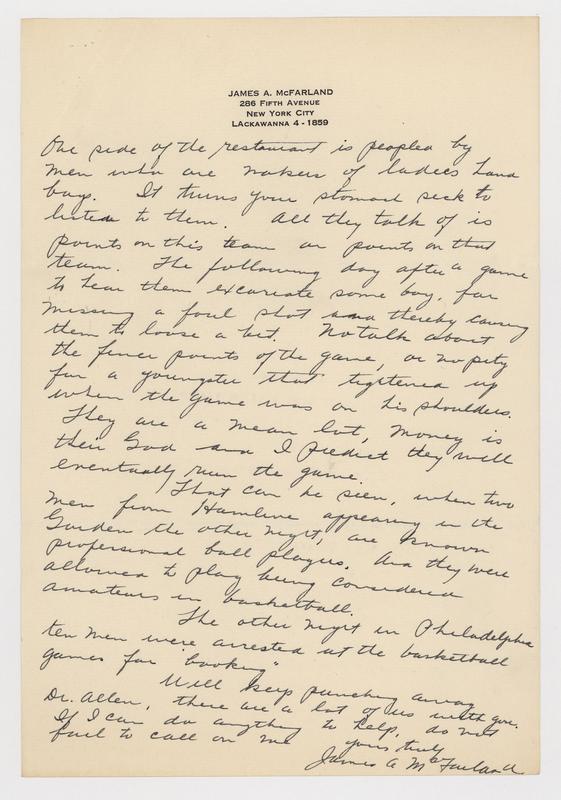 JAMES A. McFARLAND
286 FIFTH AVENUE
NEW YORK CITY
LACKAWANNA 4 - 1859
One side of the restaurant is peopled by
men who are makers of ladies hand
bags. It turns your stomach sick to
listen to them. All they talk of is
points on this team or points on that
team. The following day after a game
to hear them excoriate some boy, for
missing a foul shot and thereby causing
them to loose a bet. No talk about
the finer points of the game, or no pity
for a youngster that tightened up
when the game was on his shoulders.
They are a mean lot, money is
their God and I predict they will
eventually ruin the game.
That can be seen, when two
men from Hamline appearing in the
Garden the other night, are known
professional ball players. And they were
allowed to play being considered
amateurs in basketball.
The other night in Philadelphia
ten men were arrested at the basketball
games for "booking"
Will keep punching away
Dr. Allen, there are a lot of us with you.
If I can do anything to help, do not
fail to call on me
yours truly
James A McFarland